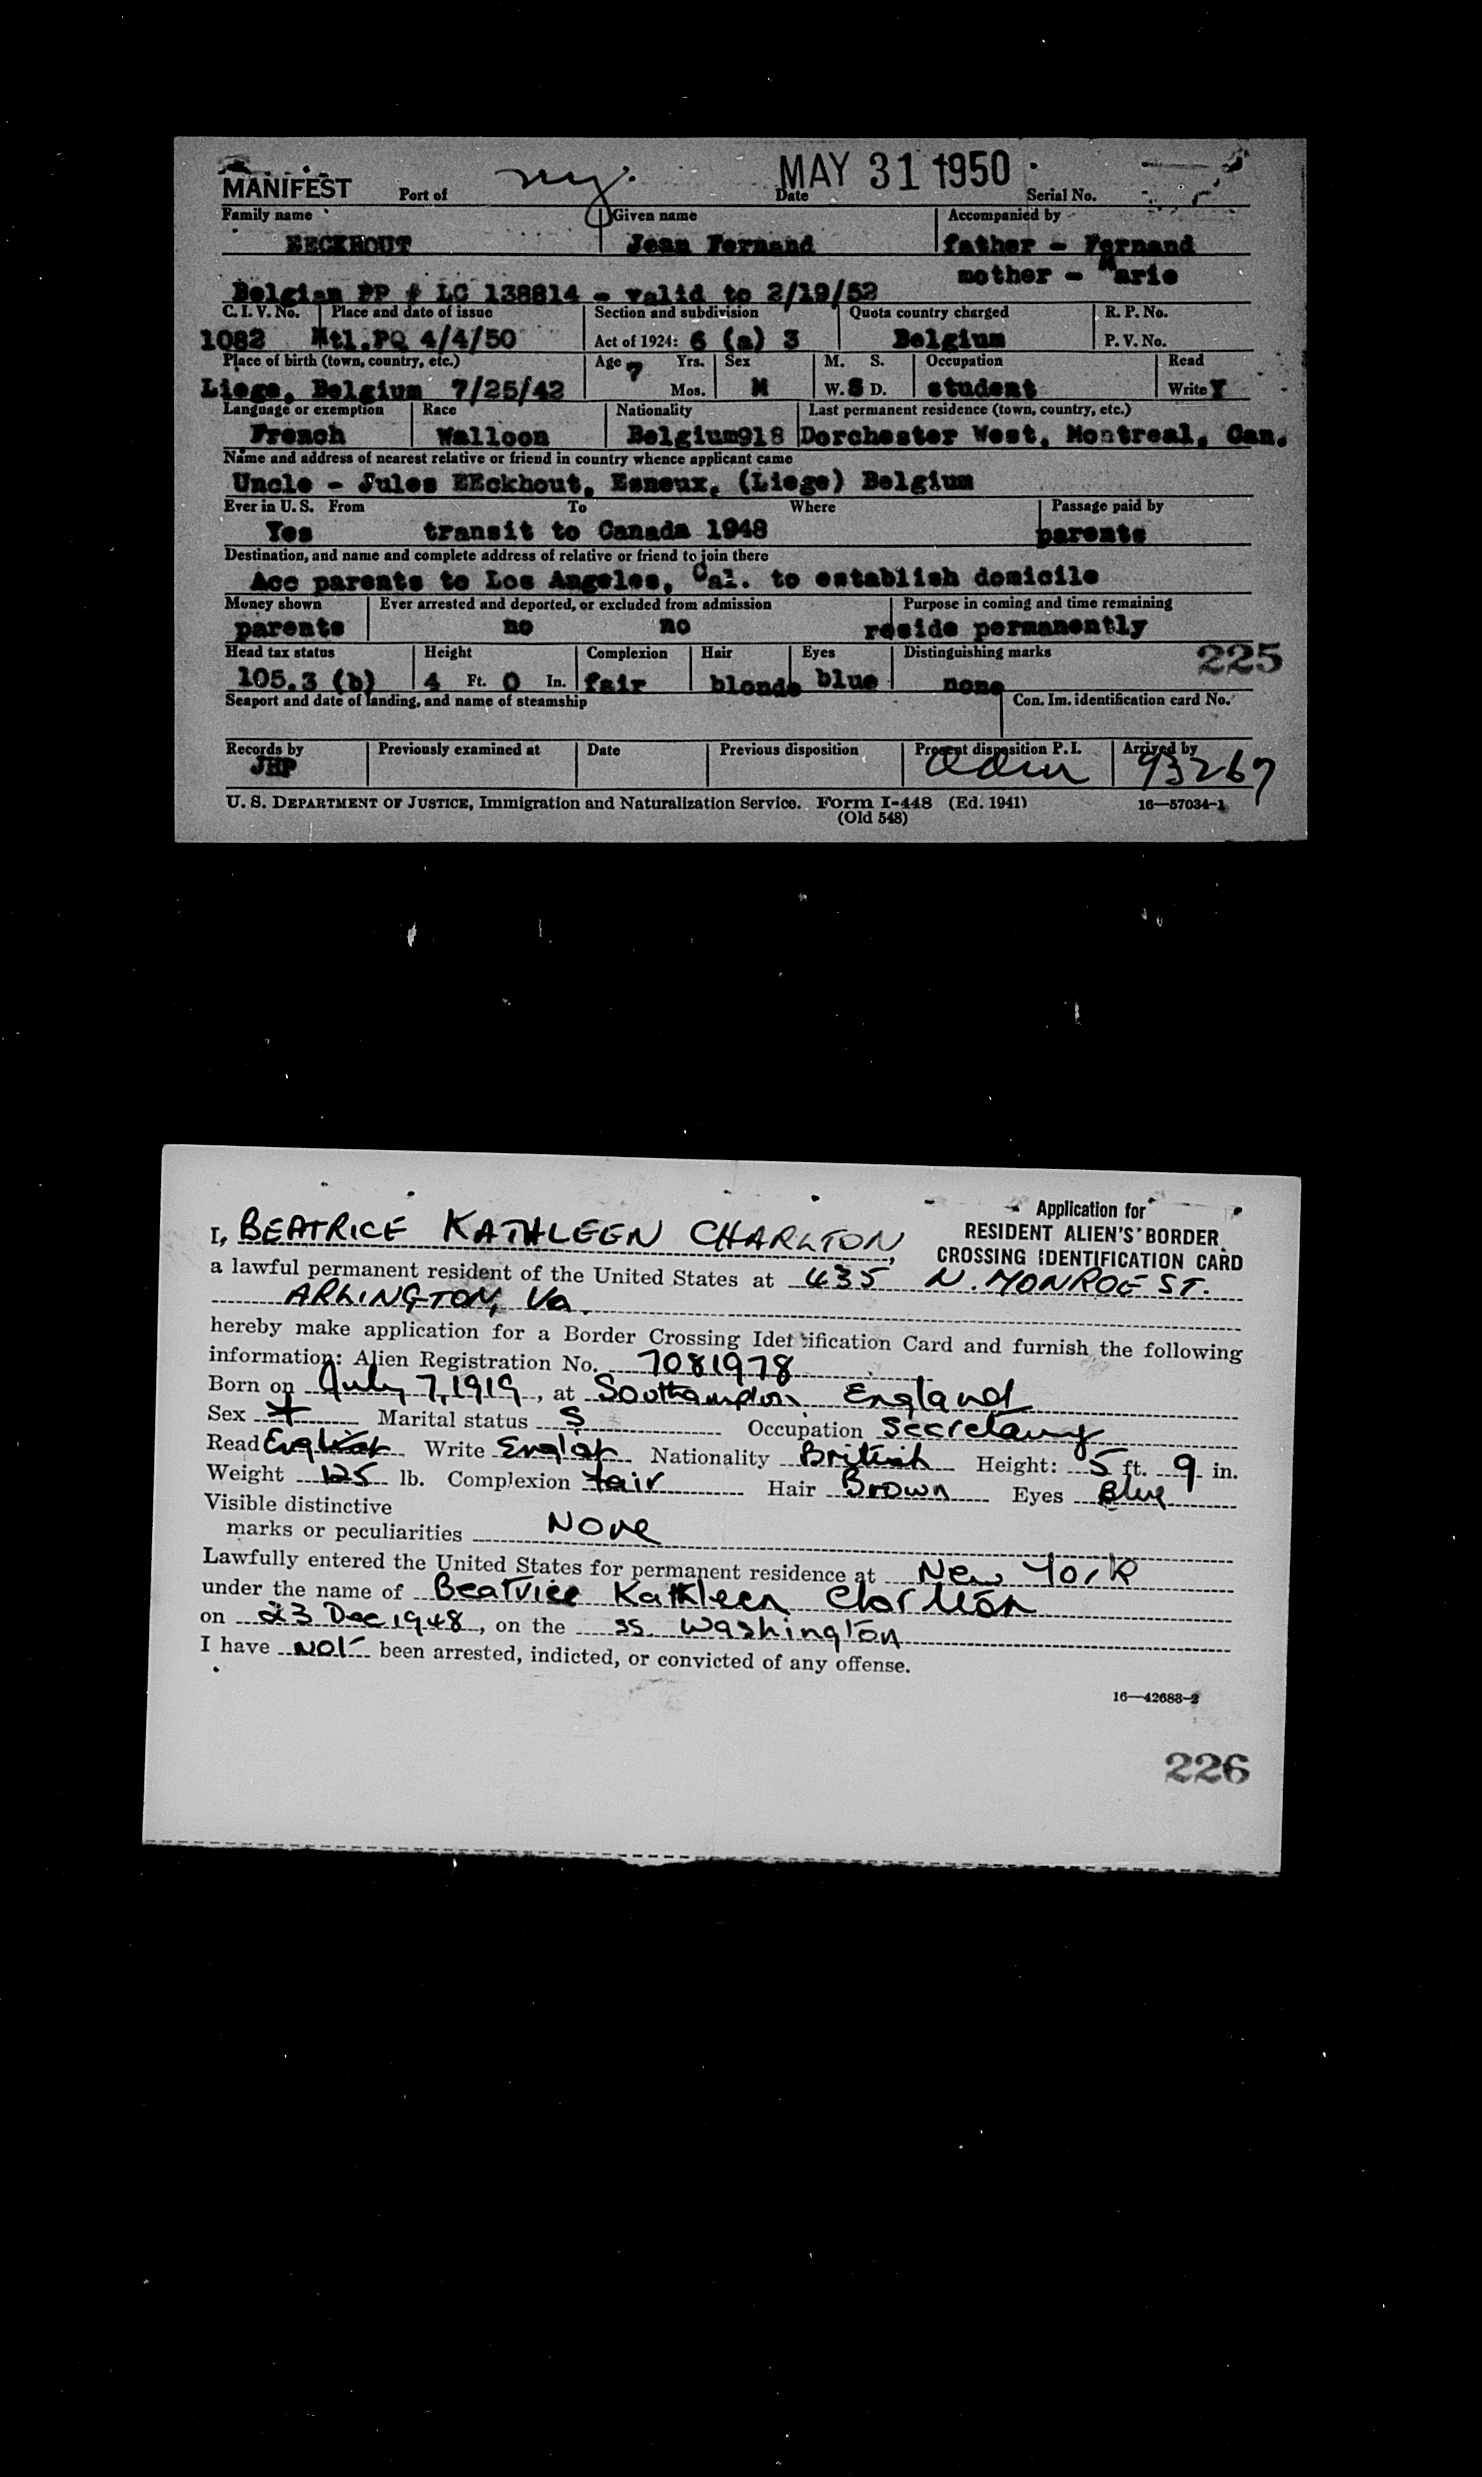 MANIFEST Port of ny. Date MAY 31 1950 Serial No.
Family name Given name Accompanied by
EECKHOUT Jean Fernand father - Fernand
mother - Marie
Belgian PP # LC 138814 - valid to 2/19/52
C. I. V. No. Place and date of issue Section and subdivision Quota country charged R. P. No.
1082 Mtl.PQ 4/4/50 Act of 1924: 6 (a) 3 Belgium P. V. No.
Place of birth (town, country, etc.) Age Yrs. Sex M. S. Occupation Read
Liege, Belgium 7/25/42 7 Mos. M W. S D. student Write Y
Language or exemption Race Nationality Last permanent residence (town, country, etc.)
French Walloon Belgium 918 Dorchester West, Montreal, Can.
Name and address of nearest relative or friend in country whence applicant came
Uncle - Jules EEckhout, Esneux, (Liege) Belgium
Ever in U. S. From To Where Passage paid by
Yes transit to Canada 1948 parents
Destination, and name and complete address of relative or friend to join there
Acc parents to Los Angeles, Cal. to establish domicile
Money shown Ever arrested and deported, or excluded from admission Purpose in coming and time remaining
parents no no reside permanently
Head tax status Height Complexion Hair Eyes Distinguishing marks 225
105.3 (b) 4 Ft. 0 In. fair blonde blue none
Seaport and date of landing, and name of steamship Con. Im. identification card No.
Records by Previously examined at Date Previous disposition Present disposition P. I. Arrived by
JHP 93267
U. S. DEPARTMENT OF JUSTICE, Immigration and Naturalization Service. Form I-448 (Ed. 1941) 16—57034-1
(Old 548)
Application for
RESIDENT ALIEN'S BORDER
CROSSING IDENTIFICATION CARD
I, BEATRICE KATHLEEN CHARLTON,
a lawful permanent resident of the United States at 435 N. MONROE ST.
ARLINGTON, Va.
hereby make application for a Border Crossing Identification Card and furnish the following
information: Alien Registration No. 7081978
Born on July 7, 1919, at Southampton England
Sex F Marital status S Occupation Secretary
Read English Write English Nationality British Height: 5 ft. 9 in.
Weight 125 lb. Complexion fair Hair Brown Eyes Blue
Visible distinctive
marks or peculiarities None
Lawfully entered the United States for permanent residence at New York
under the name of Beatrice Kathleen Charlton
on 23 Dec 1948, on the ss. Washington
I have not been arrested, indicted, or convicted of any offense.
16—42683-2
226